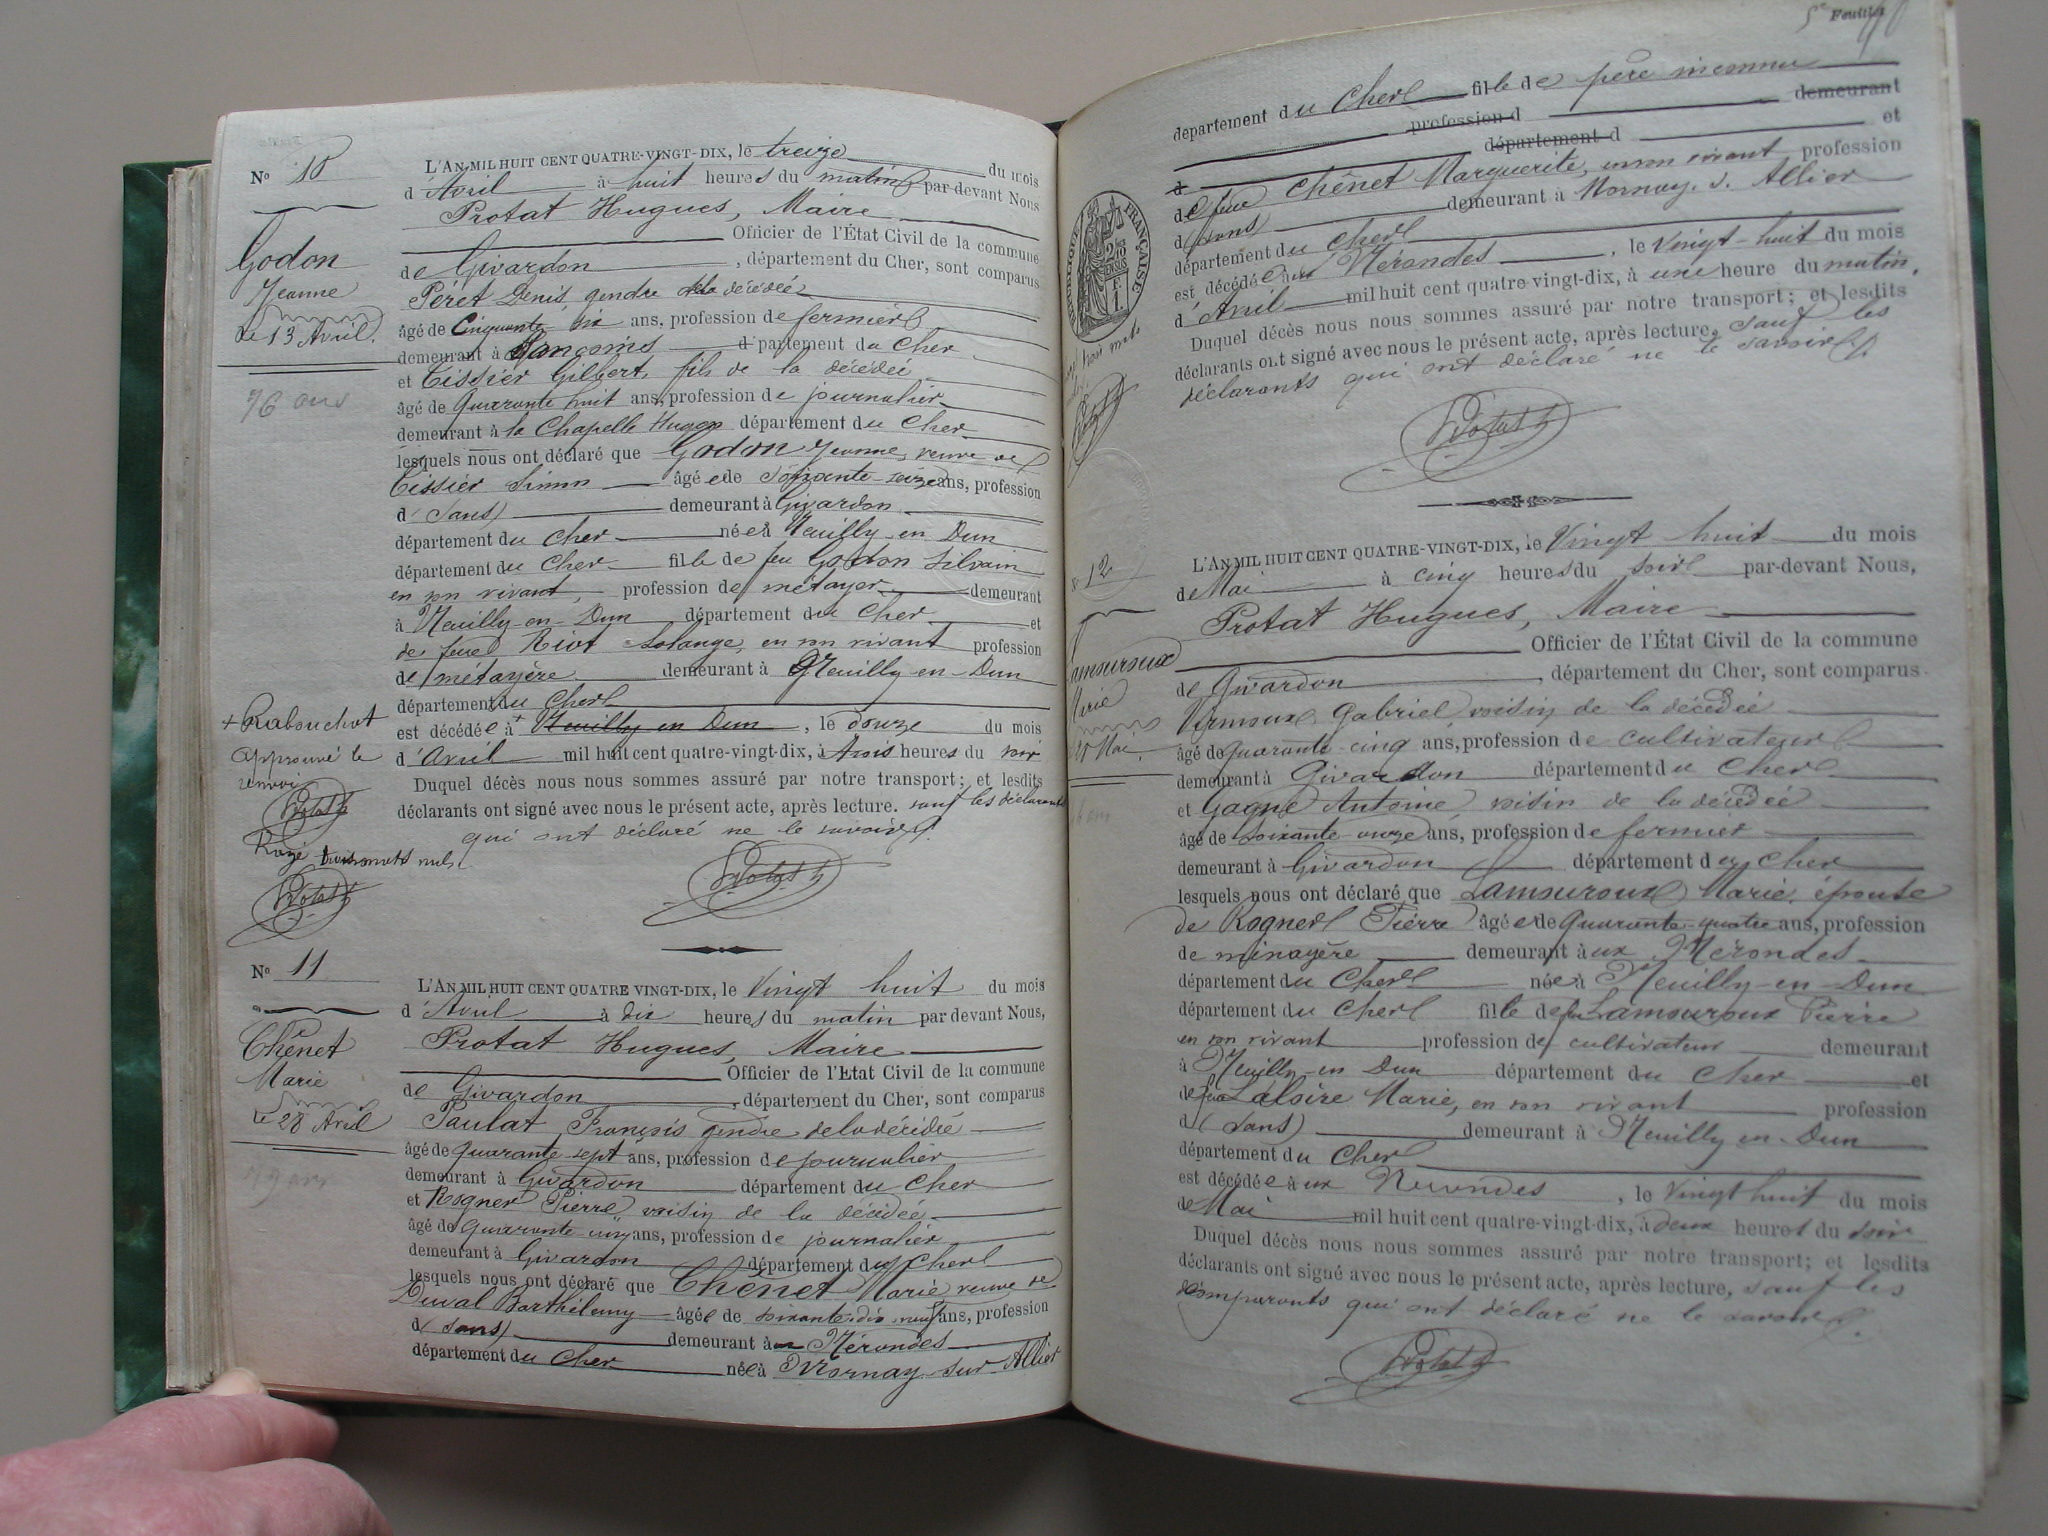 Nº 10
Godon
Jeanne
Le 13 Avril.
76 ans
L'AN MIL HUIT CENT QUATRE-VINGT-DIX, le treize du mois
d'Avril à huit heures du matin par-devant Nous
Protat Hugues, Maire
Officier de l'État Civil de la commune
de Givardon, département du Cher, sont comparus
Péret Denis, gendre de la décédée
âgé de Cinquante-six ans, profession de fermier
demeurant à Sancoins département du Cher
et Tissier Gilbert, fils de la décédée
âgé de Quarante huit ans, profession de journalier
demeurant à la Chapelle Hugon département du Cher
lesquels nous ont déclaré que Godon Jeanne, veuve de
Tissier Simon âgée de soixante-seize ans, profession
d (sans) demeurant à Givardon
département du Cher née à Neuilly-en-Dun
département du Cher fille de feu Godon Silvain
en son vivant, profession de métayer demeurant
à Neuilly-en-Dun département du Cher et
de feue Riot Solange, en son vivant profession
de métayère demeurant à Neuilly-en-Dun
département du Cher
est décédée à + Neuilly en Dun, le douze du mois
d'avril mil huit cent quatre-vingt-dix, à trois heures du soir
Duquel décès nous nous sommes assuré par notre transport; et lesdits
déclarants ont signé avec nous le présent acte, après lecture. sauf les déclarants
qui ont déclaré ne le savoir.
Protat
+ Rabouchot
approuvé le
renvoi
Protat
Rayé trois mots nuls
Protat
Nº 11
Chênet
Marie
Le 28 Avril
79 ans
L'AN MIL HUIT CENT QUATRE VINGT-DIX, le Vingt huit du mois
d'Avril à dix heures du matin par devant Nous,
Protat Hugues, Maire
Officier de l'Etat Civil de la commune
de Givardon, département du Cher, sont comparus
Paulat François gendre de la décédée
âgé de quarante-sept ans, profession de journalier
demeurant à Givardon département du Cher
et Rogner Pierre voisin de la décédée
âgé de Quarante-cinq ans, profession de journalier
demeurant à Givardon département du Cher
lesquels nous ont déclaré que Chênet Marie veuve de
Duval Barthélemy âgée de soixante-dix-neuf ans, profession
d (sans) demeurant aux Mérondes
département du Cher née à Mornay-sur-Allier
5e Feuillet
département du Cher fille de père inconnu
profession d demeurant
à département d et
de feue Chênet Marguerite, en son vivant profession
d (sans) demeurant à Mornay. s. Allier
département du Cher
est décédée aux Mérondes, le vingt-huit du mois
d'Avril mil huit cent quatre-vingt-dix, à une heure du matin.
Duquel décès nous nous sommes assuré par notre transport; et lesdits
déclarants ont signé avec nous le présent acte, après lecture, sauf les
déclarants qui ont déclaré ne le savoir.
Protat
RÉPUBLIQUE FRANÇAISE
mots
Protat
12
amouroux
Marie
28 Mai
ans
L'AN MIL HUIT CENT QUATRE-VINGT-DIX, le Vingt huit du mois
de Mai à cinq heures du soir par-devant Nous,
Protat Hugues, Maire
Officier de l'État Civil de la commune
de Givardon, département du Cher, sont comparus.
Gabriel voisin de la décédée
âgé de quarante-cinq ans, profession de cultivateur
demeurant à Givardon département du Cher
et Gagne Antoine, voisin de la décédée
âgé de soixante-onze ans, profession de fermier
demeurant à Givardon département du Cher
lesquels nous ont déclaré que Lamouroux Marie, épouse
de Rogner Pierre âgée de quarante-quatre ans, profession
de ménagère demeurant aux Mérondes
département du Cher née à Neuilly-en-Dun
département du Cher fille de feu Lamouroux Pierre
en son vivant profession de cultivateur demeurant
à Neuilly-en Dun département du Cher et
de feue Laloire Marie, en son vivant profession
d (sans) demeurant à Neuilly en-Dun
département du Cher
est décédée aux Mérondes, le Vingt huit du mois
de Mai mil huit cent quatre-vingt-dix, à deux heures du soir
Duquel décès nous nous sommes assuré par notre transport; et lesdits
déclarants ont signé avec nous le présent acte, après lecture, sauf les
comparants qui ont déclaré ne le savoir.
Protat